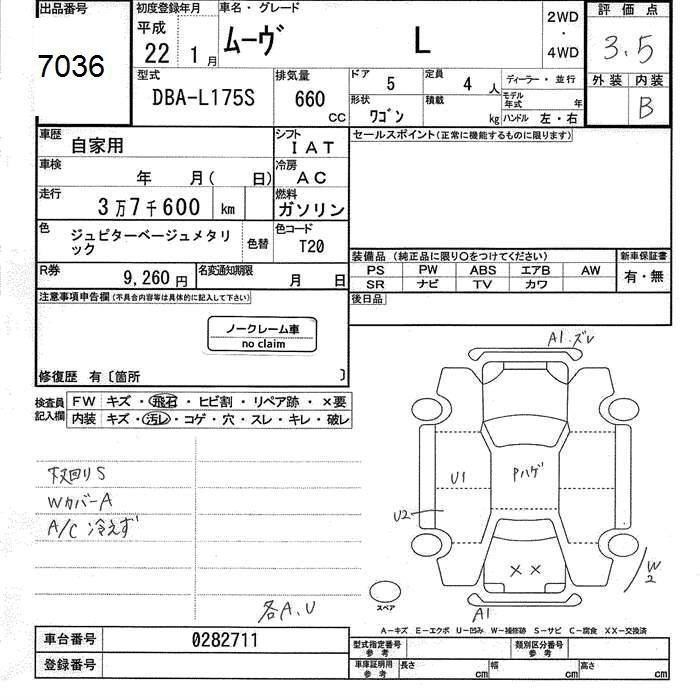 出品番号
7036
初度登録年月
平成
22 1月
車名・グレード
ムーヴ L
2WD
・
4WD
評価点
3.5
外装 内装
B
型式
DBA-L175S
排気量
660
CC
ドア 5
定員 4人
形状 ワゴン
積載 kg
ディーラー・並行
モデル年式 年
ハンドル 左・右
車歴
自家用
シフト
IAT
車検
年 月( 日)
冷房
AC
走行
3万7千600 km
燃料
ガソリン
色
ジュピターベージュメタリ
ック
色替
色コード
T20
R券
9,260円
名変通知期限
月 日
セールスポイント(正常に機能するものに限ります)
装備品 (純正品に限り○をつけてください)
PS PW ABS エアB AW
SR ナビ TV カワ
新車保証書
有・無
後日品
注意事項申告欄(不具合内容等は具体的に記入して下さい)
ノークレーム車
no claim
修復歴 有〔箇所 〕
検査員
記入欄
FW キズ・飛石・ヒビ割・リペア跡・×要
内装 キズ・汚レ・コゲ・穴・スレ・キレ・破レ
下回りS
WカバーA
A/C 冷えず
各A、U
A1・ズレ
U1
Pハゲ
U2
××
W2
A1
スペア
A−キズ E−エクボ U−凹み W−補修跡 S−サビ C−腐食 XX−交換済
車台番号
0282711
登録番号
型式指定番号
参考
類別区分番号
参考
車庫証明用
参考
長さ cm
幅 cm
高さ cm